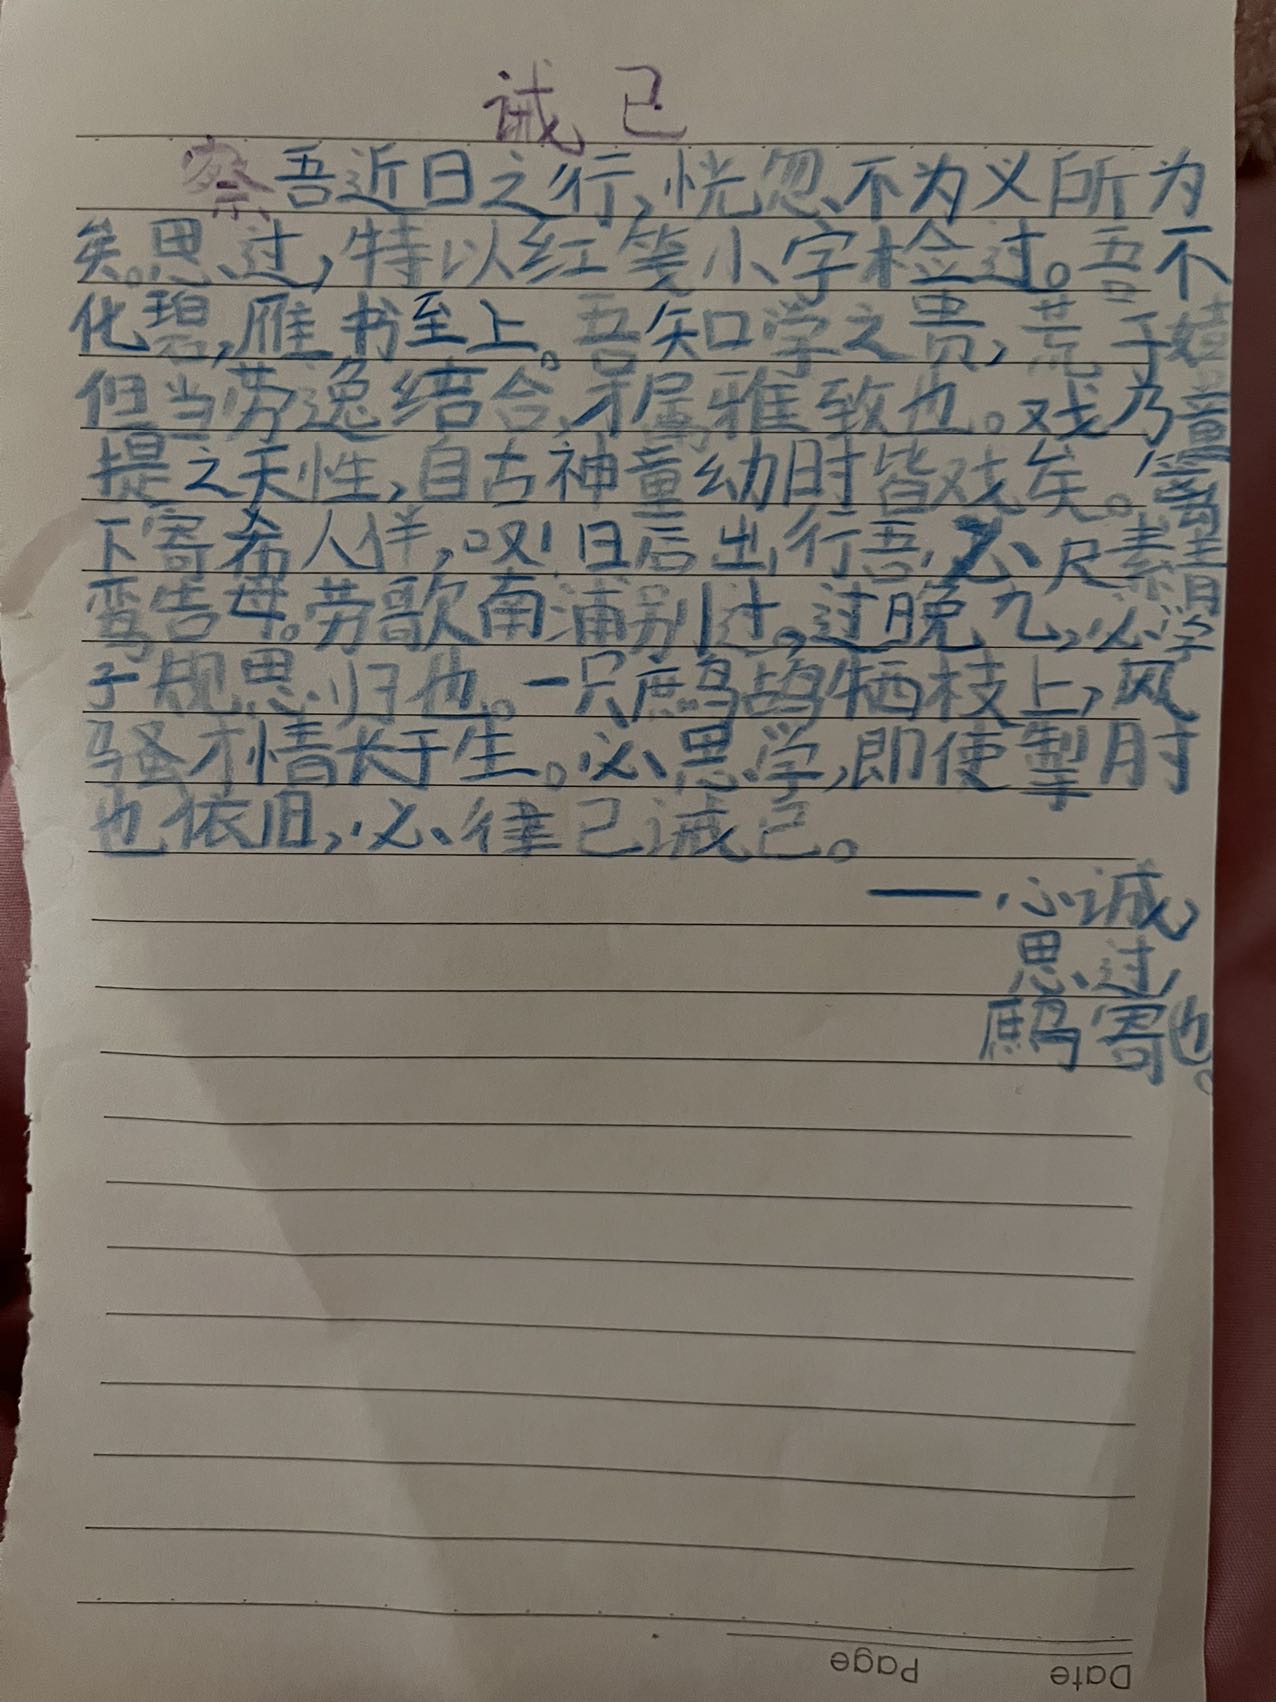 诫己
察吾近日之行,恍忽不为义所为
矣。思过,特以红笺小字检过。吾不
化碧,雁书至上。吾知学之贵,荒于嬉
但当劳逸结合,才属雅致也。戏乃童
提之天性,自古神童幼时皆戏矣。篱
下寄希人伴,叹!日后出行吾必尺素青
鸾告母。劳歌南浦别过。过晚九,必学
子规思归也。一只鹧鸪牺枝上,风
骚才情长于生。必思学,即使掣肘
也依旧,必律己诫己。
——心诚
思过
鹧寄也。
Page
Date